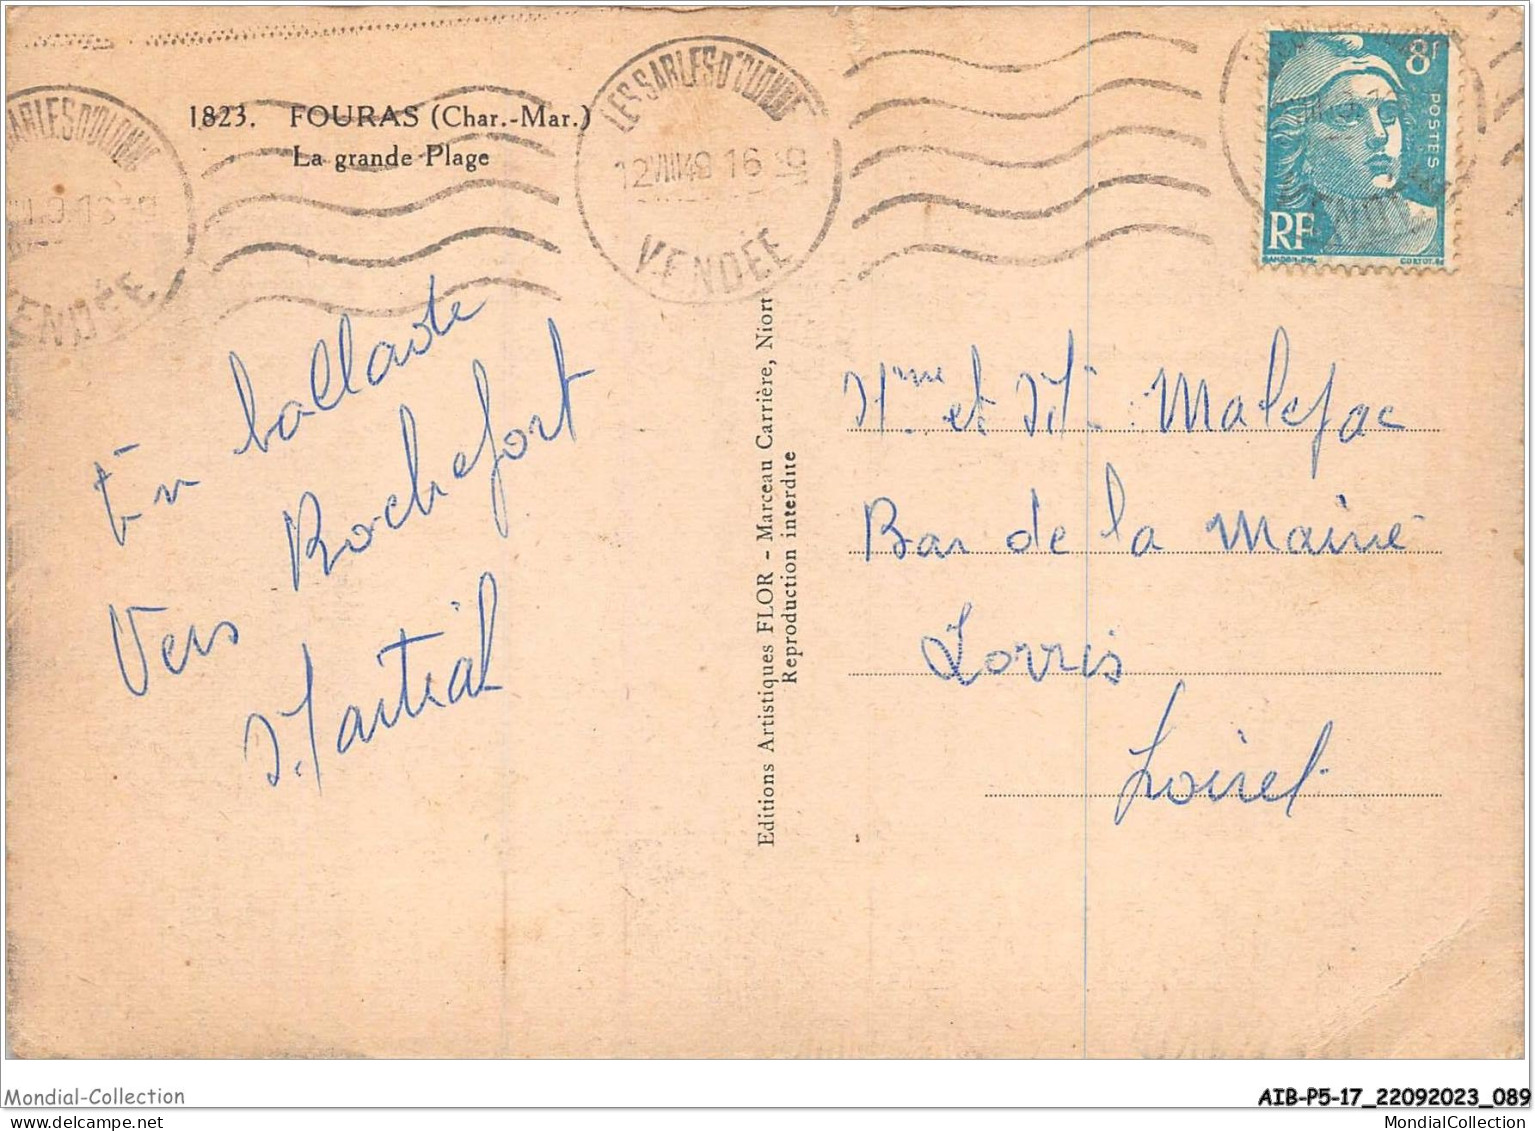 1823. FOURAS (Char.-Mar.)
La grande Plage
LES SABLES D'OLONNE
12 VIII 49 16
VENDÉE
SABLES D'OLONNE
VENDÉE
8F
POSTES
RF
GANDON.DEL.
CORTOT.SC
En ballade
Vers Rochefort
Martial
Editions Artistiques FLOR - Marceau Carrière, Niort
Reproduction interdite
Mme et Mr Malefac
Bar de la Mairie
Lorris
Loiret
Mondial-Collection
AIB-P5-17_22092023_089
MondialCollection